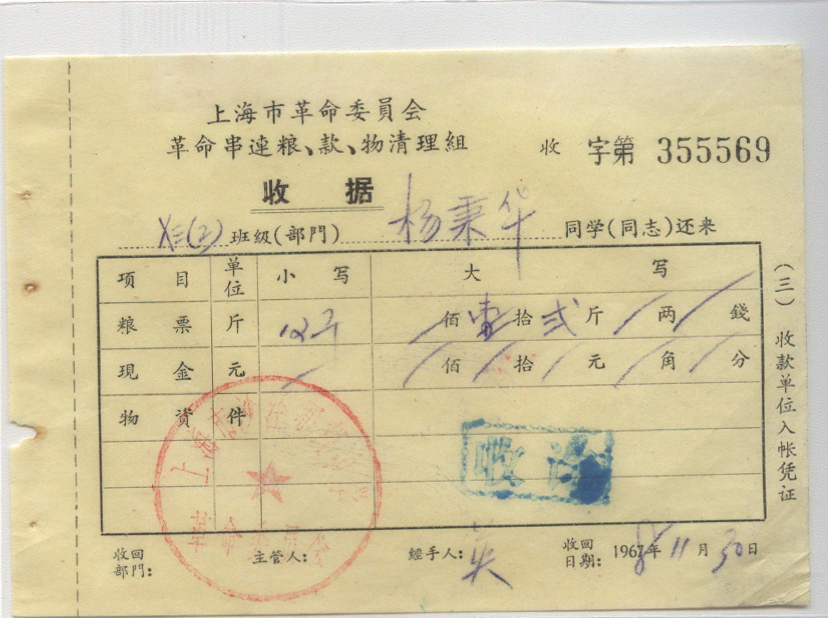 上海市革命委員会
革命串連粮、款、物清理組
收 字第 355569
收 据
(2)班级(部門) 杨秉华 同学(同志)还来
項 目 单位 小 写 大 写
粮 票 斤 12斤 佰壹拾弍斤 両 錢
現 金 元 佰 拾 元 角 分
物 資 件
收讫
收回部門: 主管人: 經手人: 收回日期: 1968年11月30日
(三)收款单位入帐凭证